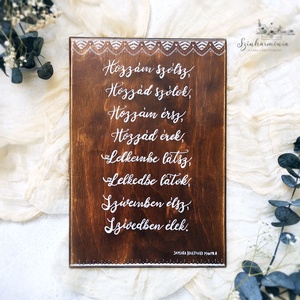 Színharmónia
Hozzám szólsz,
Hozzád szólok,
Hozzám érsz,
Hozzád érek.
Lelkembe látsz,
Lelkedbe látok,
Szívemben élsz,
Szívedben élek.